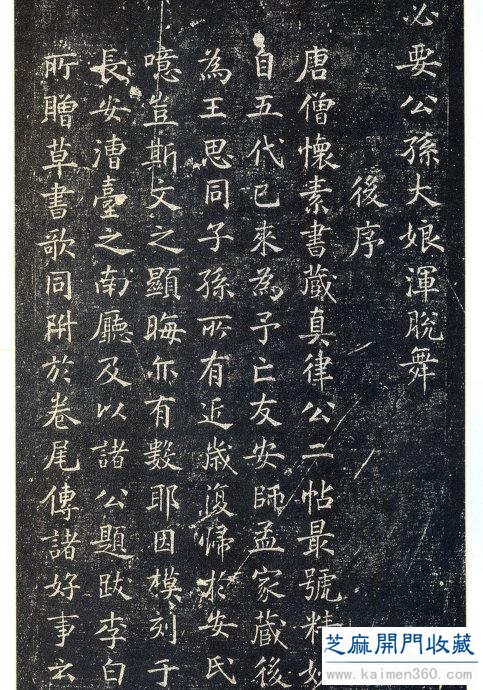 必要公孫大娘渾脫舞
後序
唐僧懷素書藏真律公二帖最號精妙
自五代已來為予亡友安師孟家藏後
為王思同子孫所有近歲復歸於安氏
噫豈斯文之顯晦亦有數耶因模刻于
長安漕臺之南廳及以諸公題跋李白
所贈草書歌同附於卷尾傳諸好事云
芝麻開門收藏
www.kaimen360.com